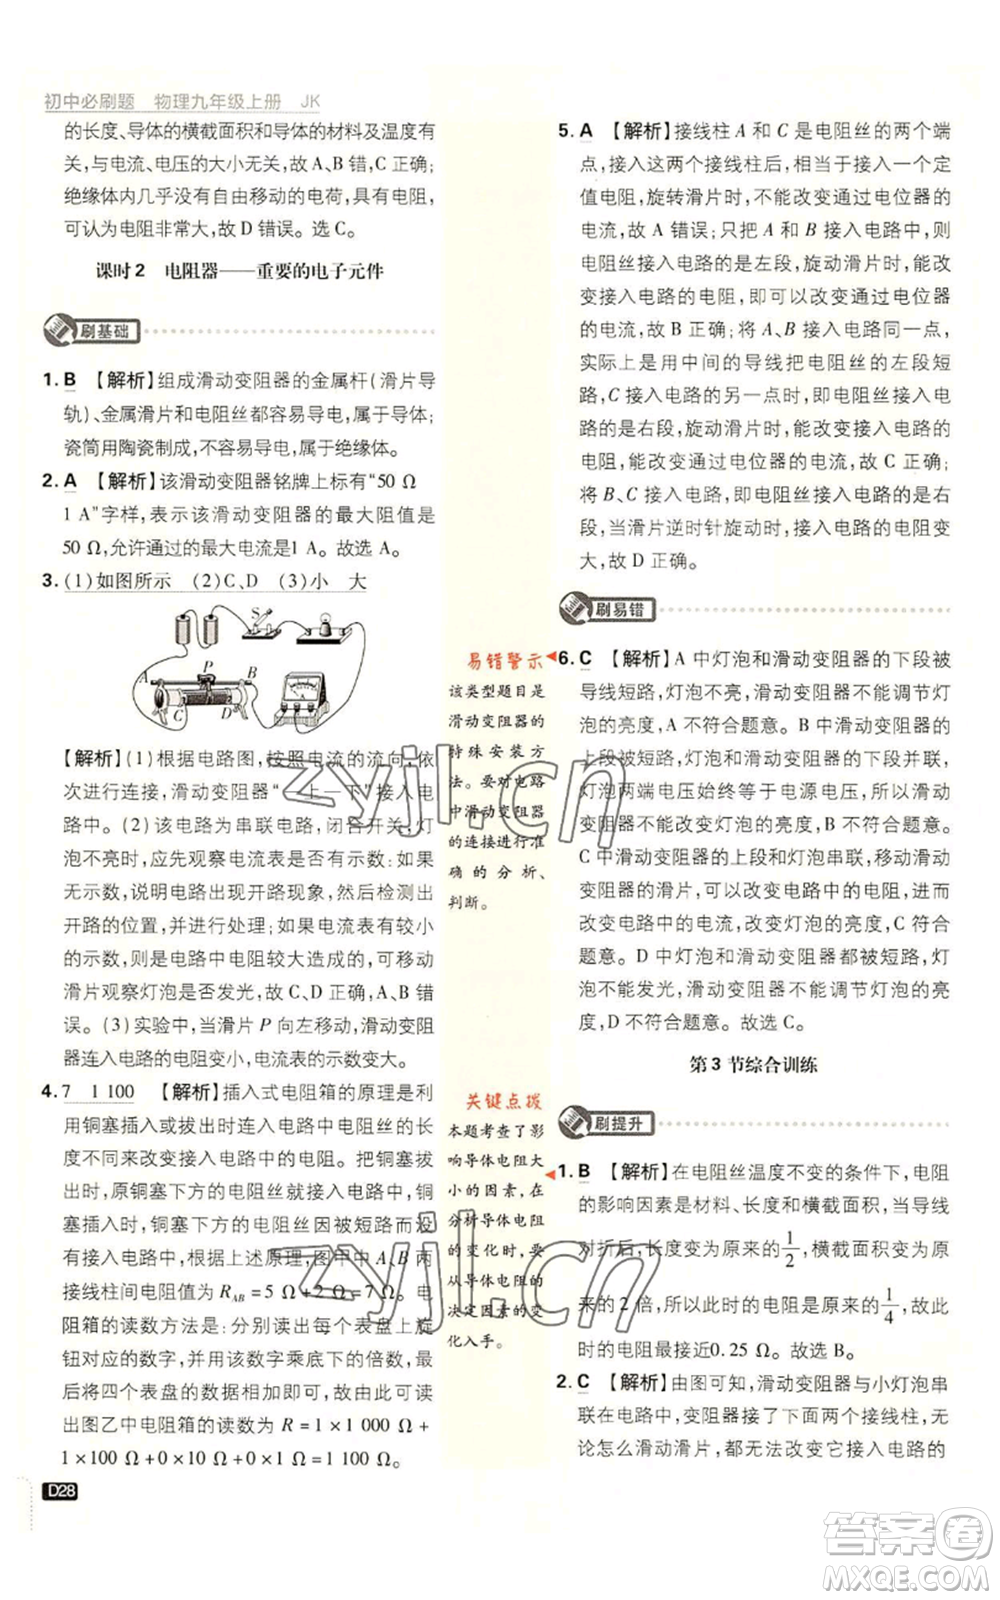 初中必刷题 物理九年级上册 JK
的长度、导体的横截面积和导体的材料及温度有
关,与电流、电压的大小无关,故 A、B、C 正确;
绝缘体内几乎没有自由移动的电荷,具有电阻,
可认为电阻非常大,故 D 错误。选 C。
课时2 电阻器——重要的电子元件
刷基础
1. B 【解析】组成滑动变阻器的金属杆(滑片导
轨)、金属滑片和电阻丝都容易导电,属于导体;
瓷筒用陶瓷制成,不容易导电,属于绝缘体。
2. A 【解析】该滑动变阻器铭牌上标有“50 Ω
1 A”字样,表示该滑动变阻器的最大阻值是
50 Ω,允许通过的最大电流是1 A。故选 A。
3. (1)如图所示 (2)C、D (3)小 大
S
A
P
B
C
D
A
【解析】(1)根据电路图,按照电流的流向,依
次进行连接,滑动变阻器“一上一下”接入电
路中。(2)该电路为串联电路,闭合开关,灯
泡不亮时,应先观察电流表是否有示数:如果
无示数,说明电路出现开路现象,然后检测出
开路的位置,并进行处理;如果电流表有较小
的示数,则是电路中电阻较大造成的,可移动
滑片观察灯泡是否发光,故 C、D 正确,A、B 错
误。(3)实验中,当滑片 P 向左移动,滑动变阻
器连入电路的电阻变小,电流表的示数变大。
4. 7 1 100 【解析】插入式电阻箱的原理是利
用铜塞插入或拔出时连入电路中电阻丝的长
度不同来改变接入电路中的电阻。把铜塞拔
出时,原铜塞下方的电阻丝就接入电路中,铜
塞插入时,铜塞下方的电阻丝因被短路而没
有接入电路中,根据上述原理,图甲中 A、B 两
接线柱间电阻值为 R_AB = 5 Ω + 2 Ω = 7 Ω。电
阻箱的读数方法是:分别读出每个表盘上旋
钮对应的数字,并用该数字乘底下的倍数,最
后将四个表盘的数据相加即可,故可读
出图乙中电阻箱的读数为 R = 1 × 1 000 Ω +
1 × 100 Ω + 0 × 10 Ω + 0 × 1 Ω = 1 100 Ω。
D28
易错警示
该类型题目是
滑动变阻器的
特殊安装方
法。要对电路
中滑动变阻器
的连接进行准
确的分析、
判断。
关键点拨
本题考查了影
响导体电阻大
小的因素,在
分析导体电阻
的变化时,要
从导体电阻的
决定因素的变
化入手。
5. A 【解析】接线柱 A 和 C 是电阻丝的两个端
点,接入这两个接线柱后,相当于接入一个定
值电阻,旋转滑片时,不能改变通过电位器的
电流,故 A 错误;只把 A、B 接入电路中时,则
电阻丝的是左段,旋动滑片时,能改
变接入电路的电阻,可以改变通过电位器的
电流,故 B 正确;将 A、B 接入电路的同一点,
实际上是用中间的导线把电阻丝的左段短
路,C 接入电路的另一点时,即接入电路的是
右段,旋动滑片时,可以改变接入电路的电
阻,能改变通过电位器的电流,故 C 正确;
将 B、C 接入电路,则接入电阻丝的是右
段,当滑片逆时针旋动时,接入电路的电阻变
大,故 D 正确。
刷易错
6. C 【解析】A 中灯泡和滑动变阻器的下段被
导线短路,灯泡不亮,滑动变阻器不能调节灯
泡的亮度,A 不符合题意。B 中滑动变阻器的
上段被短路,灯泡和滑动变阻器的下段并联,
灯泡两端电压始终等于电源电压,所以滑动
变阻器不能改变灯泡的亮度,B 不符合题意。
C 中滑动变阻器的上段和灯泡串联,移动滑动
变阻器的滑片,可以改变电路中的电阻,进而
改变电路中的电流,改变灯泡的亮度,C 符合
题意。D 中灯泡被短路,无论怎样移动滑片,灯
泡不能发光,滑动变阻器不能调节灯泡的亮
度,D 不符合题意。故选 C。
第 3 节综合训练
刷提升
1. B 【解析】在电阻丝温度不变的条件下,电阻
的影响因素是材料、长度和横截面积,当导线
对折后,长度变为原来的1/2,横截面积变为原
来的 2 倍,所以此时的电阻是原来的1/4,故此
时的电阻最接近0.25 Ω。故选 B。
2. C 【解析】由图可知,滑动变阻器与小灯泡串
联在电路中,变阻器接了下面两个接线柱,无
论怎么滑动滑片,都无法改变它接入电路的
zyjl.cn
zyjl.cn
答案圈
MXQE.COM